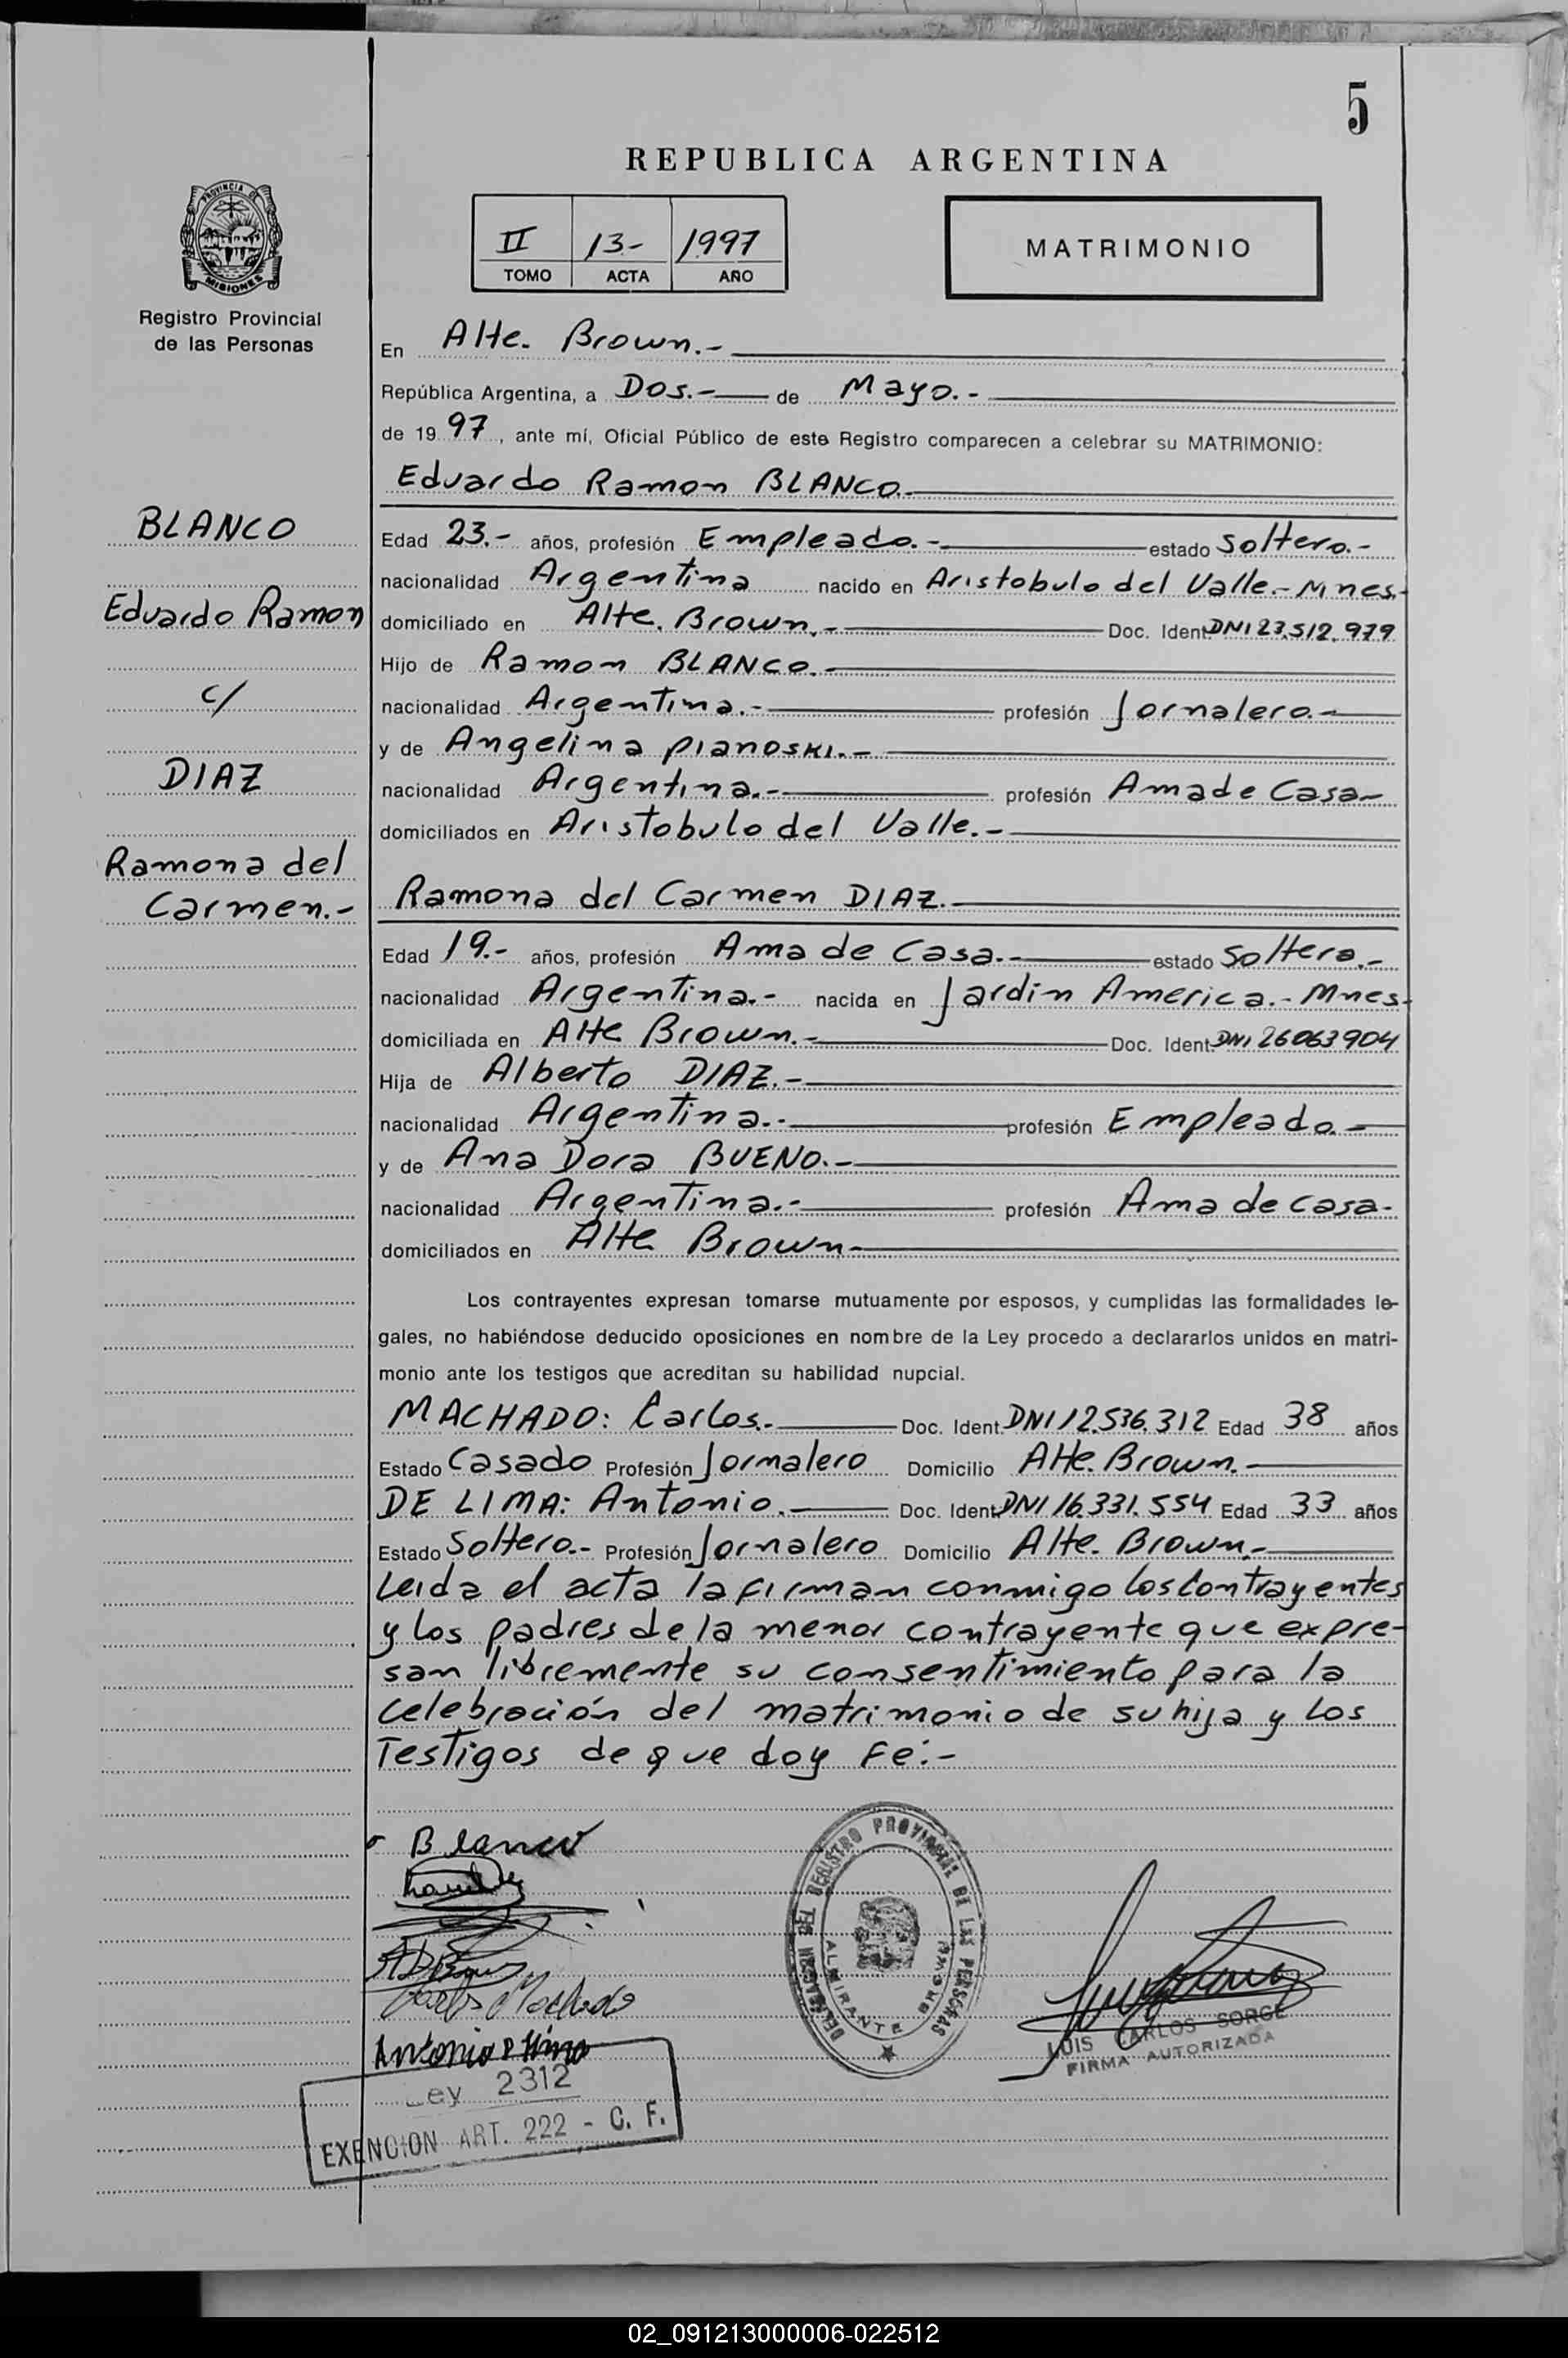 5
REPUBLICA ARGENTINA
PROVINCIA DE
MISIONES
Registro Provincial
de las Personas
II 13.- 1997
TOMO ACTA AÑO
MATRIMONIO
En Alte. Brown.-
República Argentina, a Dos.- de Mayo.-
de 19 97, ante mí, Oficial Público de este Registro comparecen a celebrar su MATRIMONIO:
Eduardo Ramon BLANCO.-
BLANCO
Eduardo Ramon
c/
DIAZ
Ramona del
Carmen.-
Edad 23.- años, profesión Empleado.- estado Soltero.-
nacionalidad Argentina nacido en Aristobulo del Valle.- Mnes.-
domiciliado en Alte. Brown.- Doc. Ident. DNI 23.512.979
Hijo de Ramon BLANCO.-
nacionalidad Argentina.- profesión Jornalero.-
y de Angelina PIANOSKI.-
nacionalidad Argentina.- profesión Ama de Casa-
domiciliados en Aristobulo del Valle.-
Ramona del Carmen DIAZ.-
Edad 19.- años, profesión Ama de Casa.- estado Soltera.-
nacionalidad Argentina.- nacida en Jardin America.- Mnes-
domiciliada en Alte Brown.- Doc. Ident. DNI 26063904
Hija de Alberto DIAZ.-
nacionalidad Argentina.- profesión Empleado.-
y de Ana Dora BUENO.-
nacionalidad Argentina.- profesión Ama de Casa-
domiciliados en Alte Brown-
Los contrayentes expresan tomarse mutuamente por esposos, y cumplidas las formalidades le-
gales, no habiéndose deducido oposiciones en nombre de la Ley procedo a declararlos unidos en matri-
monio ante los testigos que acreditan su habilidad nupcial.
MACHADO: Carlos.- Doc. Ident. DNI 12.536.312 Edad 38 años
Estado Casado Profesión Jornalero Domicilio Alte. Brown.-
DE LIMA: Antonio.- Doc. Ident. DNI 16.331.554 Edad 33 años
Estado Soltero.- Profesión Jornalero Domicilio Alte. Brown.-
Leida el acta la firman conmigo los Contrayentes
y los padres de la menor contrayente que expre-
san libremente su consentimiento para la
celebración del matrimonio de su hija y los
Testigos de que doy Fé:-
Blanco
Carlos Machado
Antonio
DEL REGISTRO PROVINCIAL DE LAS PERSONAS
ALMIRANTE BROWN
LUIS CARLOS SORGE
FIRMA AUTORIZADA
Ley 2312
EXENCION ART. 222 - C. F.
02_091213000006-022512